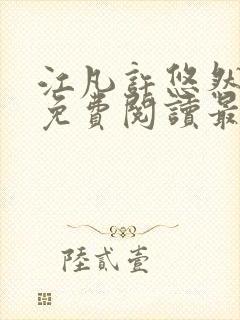 江凡許悠然
免費閱讀最
陸貳壹